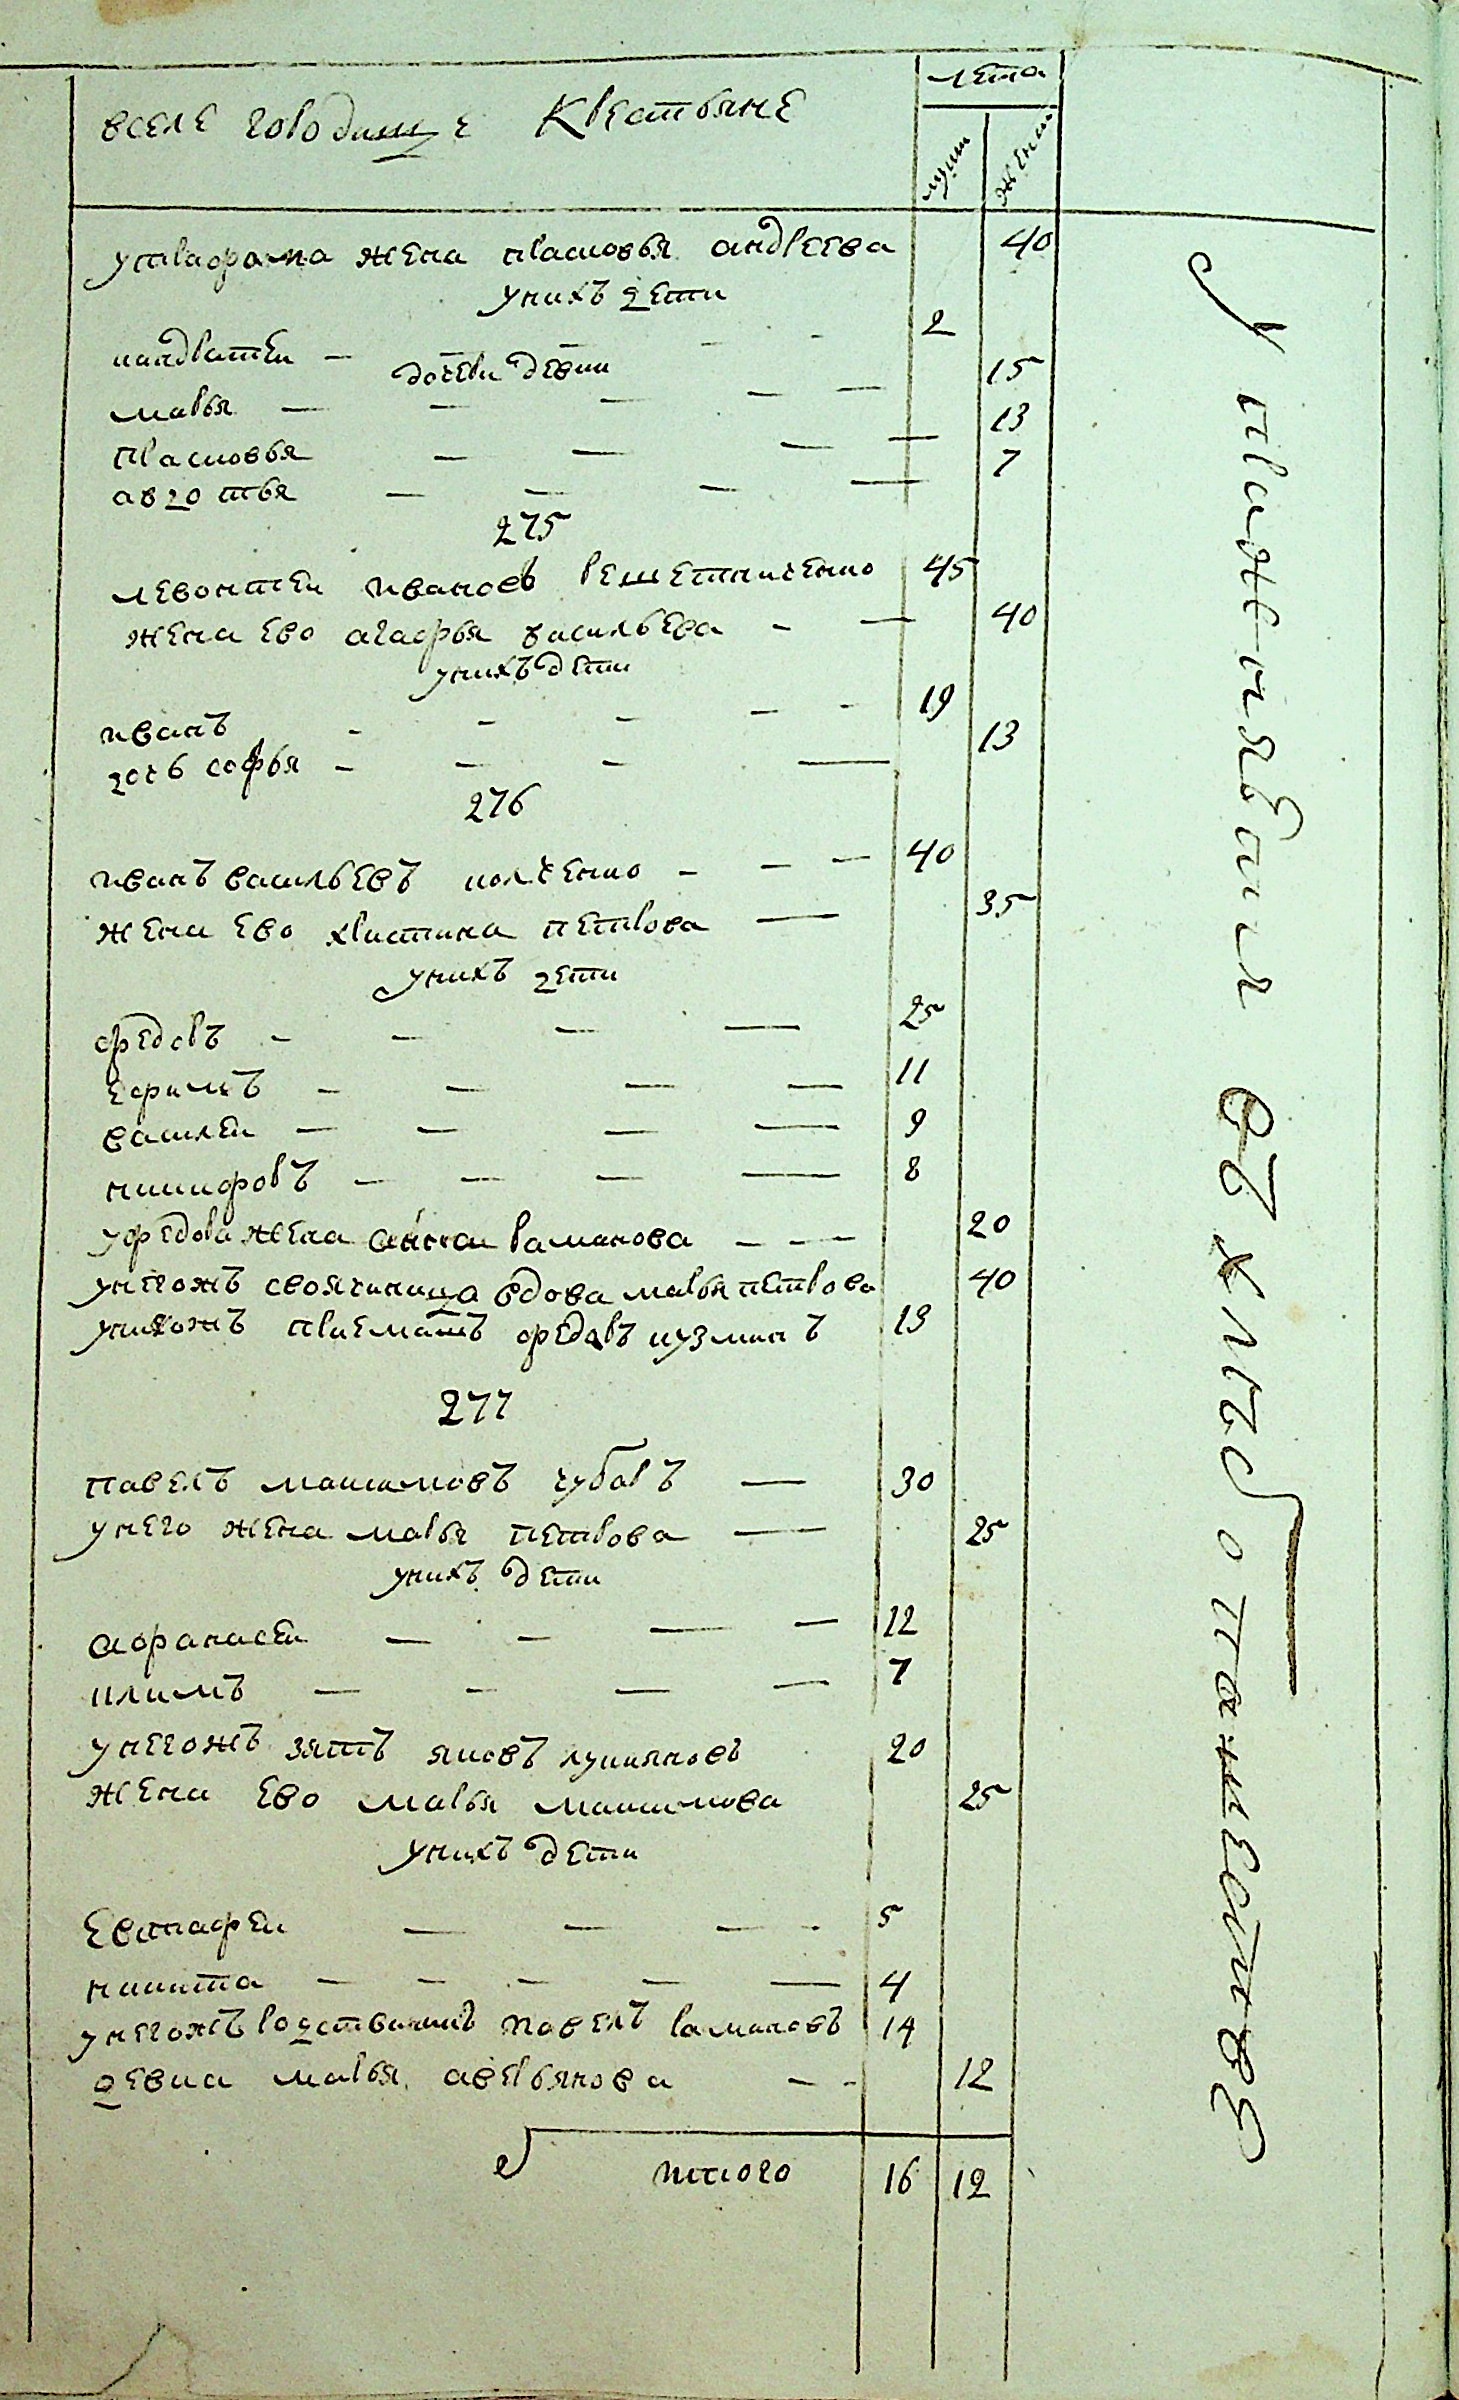 лета
вселе городище Крестьяне
муш женш
утрафима жена прасковья андреева 40
унихъ дети
кандратеи — — — 2
дочери девки
марья — — — 15
прасковья — — — 13
авдотья — — — 7
275
левонтеи ивановъ решетниченко 45
жена ево агафья васильева — — 40
унихъ дети
иванъ — — — 19
дочь софья — — — 13
276
иванъ васильевъ колченко — — — 40
жена ево христина петрова — 35
унихъ дети
федоръ — — — — 25
ефимъ — — — — 11
василеи — — — — 9
никифоръ — — — — 8
уфедора жена анна романова — — — 20
унегожъ своячиница вдова марья петрова 40
унихожъ приематъ федоръ кузминъ 13
277
павелъ максимовъ губаръ — 30
унего жена марья петрова — 25
унихъ дети
афанасеи — — — — 12
климъ — — — — 7
унегожъ зять яковъ лукьяновъ 20
жена ево марья максимова 25
унихъ дети
евстафеи — — — 5
никита — — — — — 4
унегожъ родственикъ павелъ романовъ 14
девка марья аверьянова — — 12
итого 16 12
У праженябыли